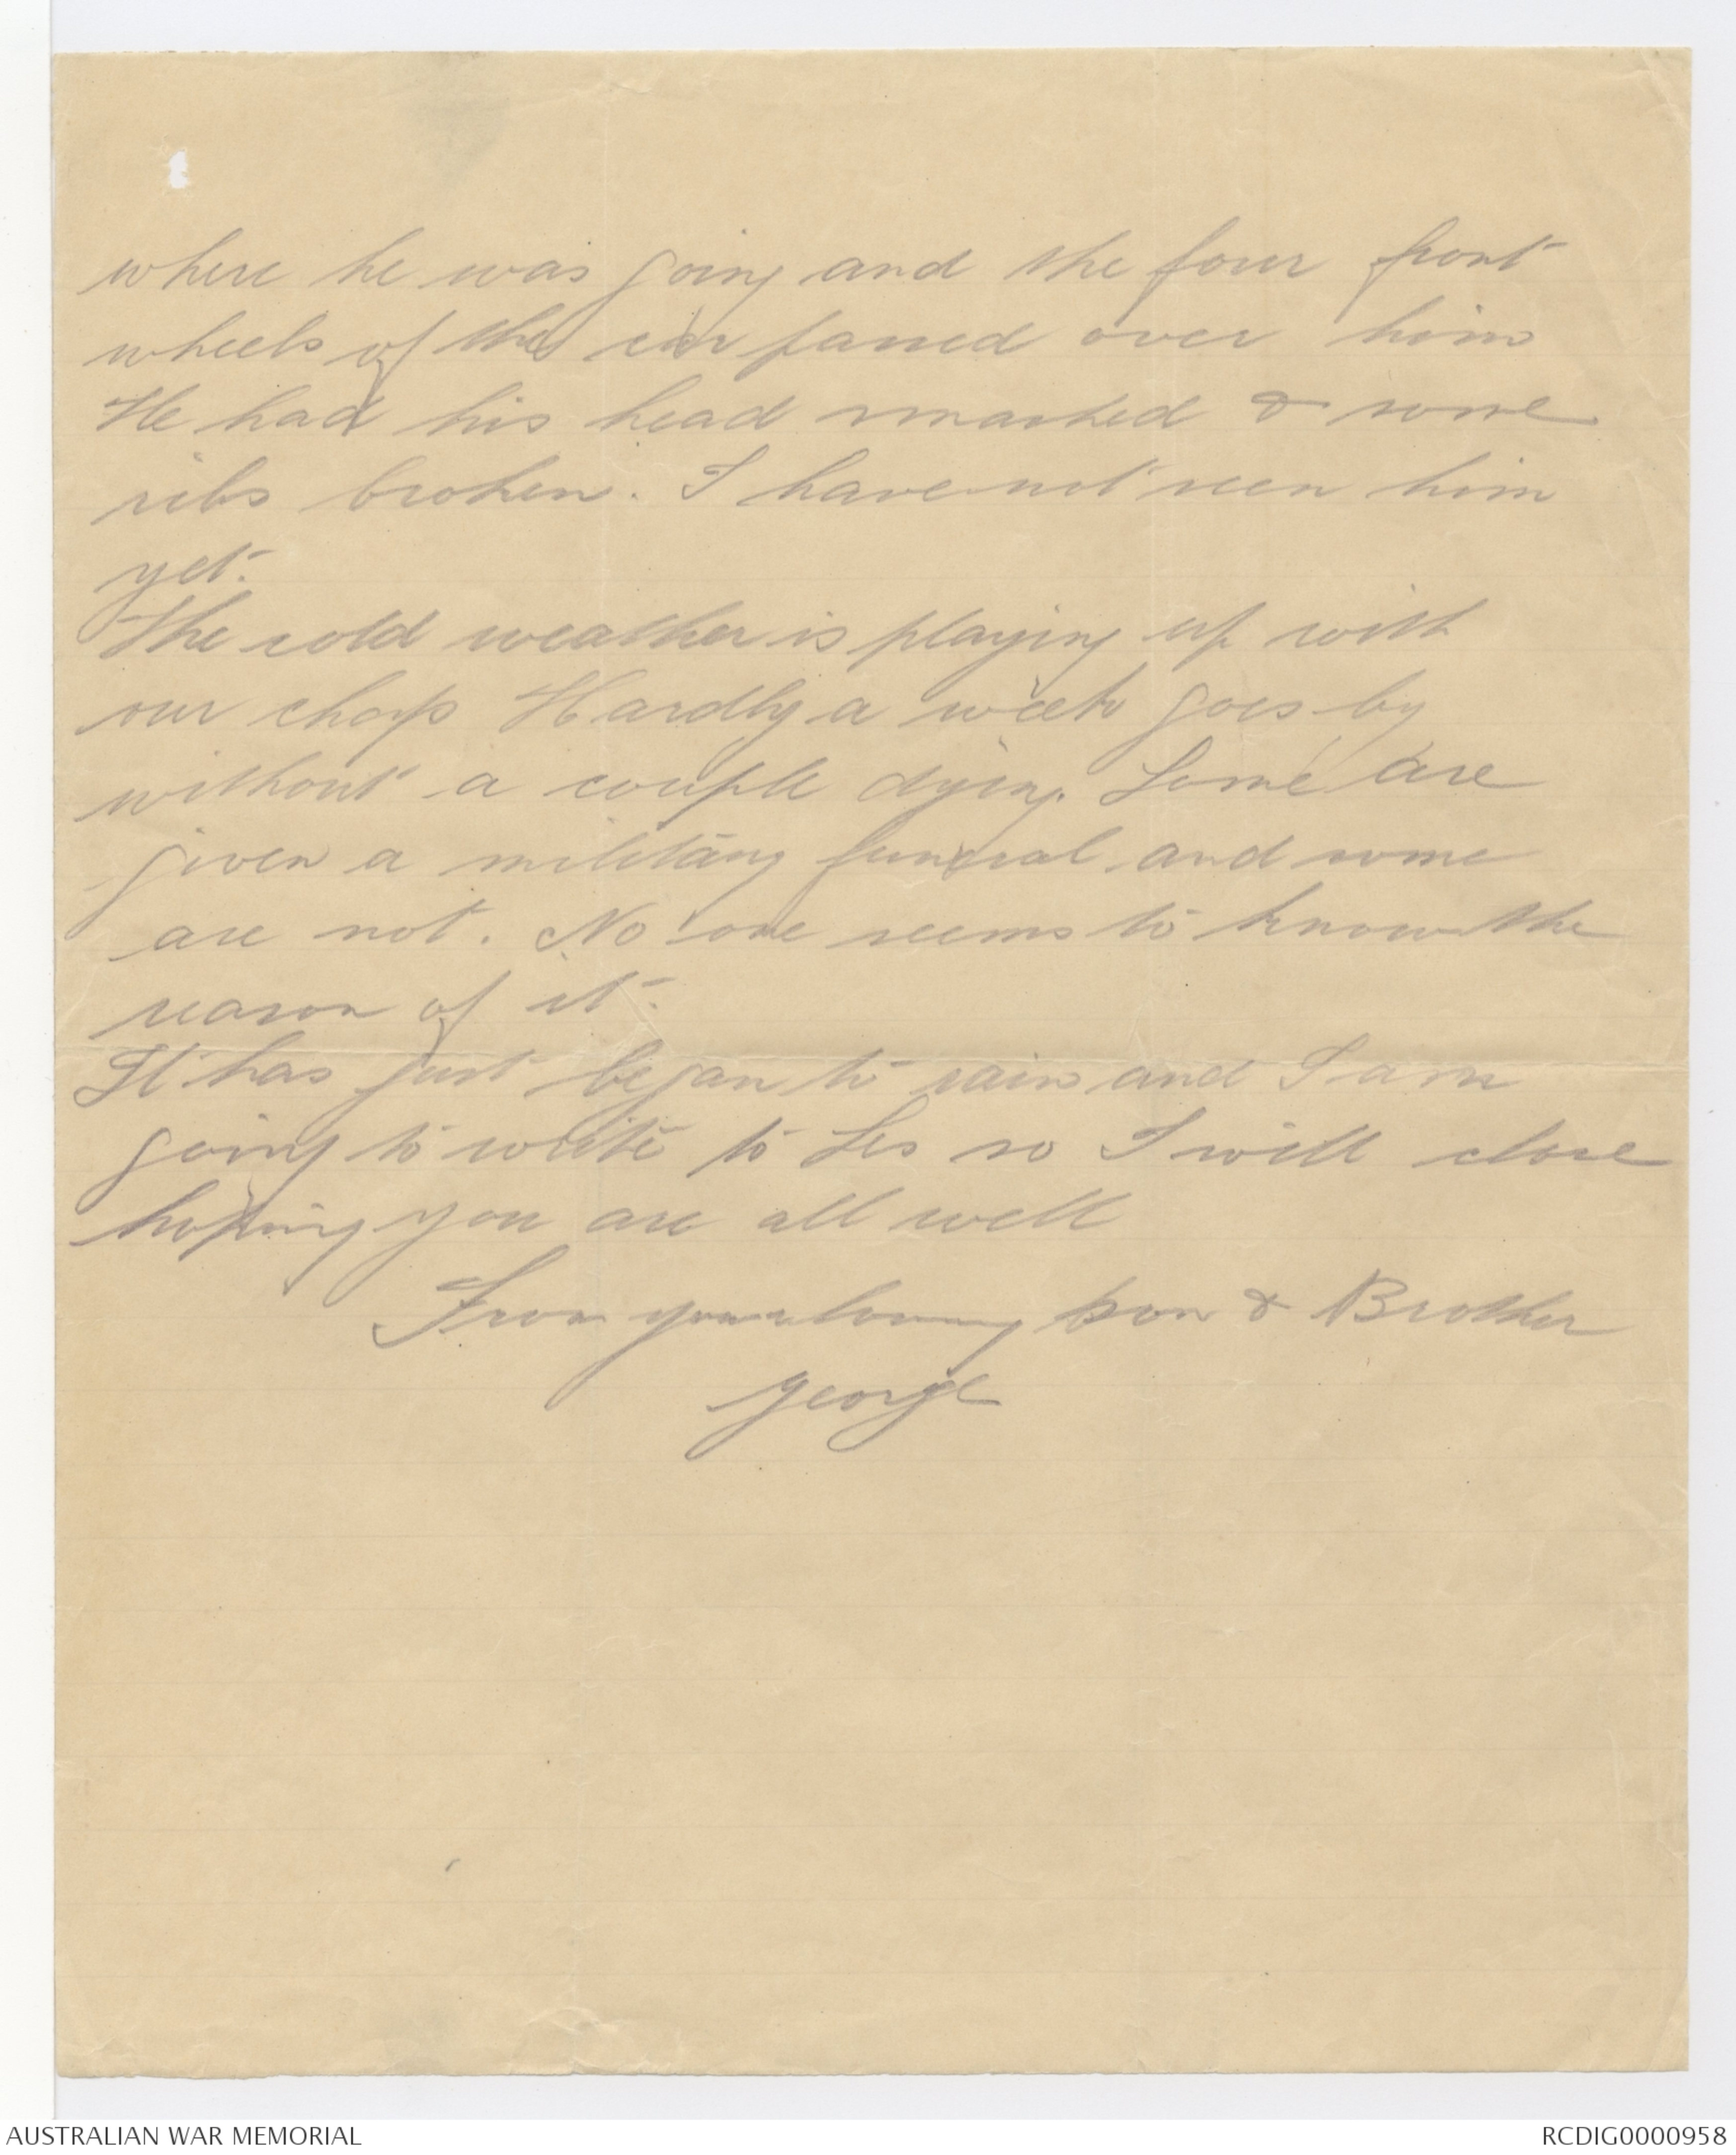 where he was going and the four front
wheels of the car passed over him
He had his head smashed & some
ribs broken. I have not seen him
yet.
The cold weather is playing up with
our chaps Hardly a week goes by
without a couple dying. Some are
given a military funeral and some
are not. No one seems to know the
reason of it.
It has just began to rain and I am
going to write to Les so I will close
hoping you are all well
From your loving Son & Brother
George
AUSTRALIAN WAR MEMORIAL
RCDIG0000958